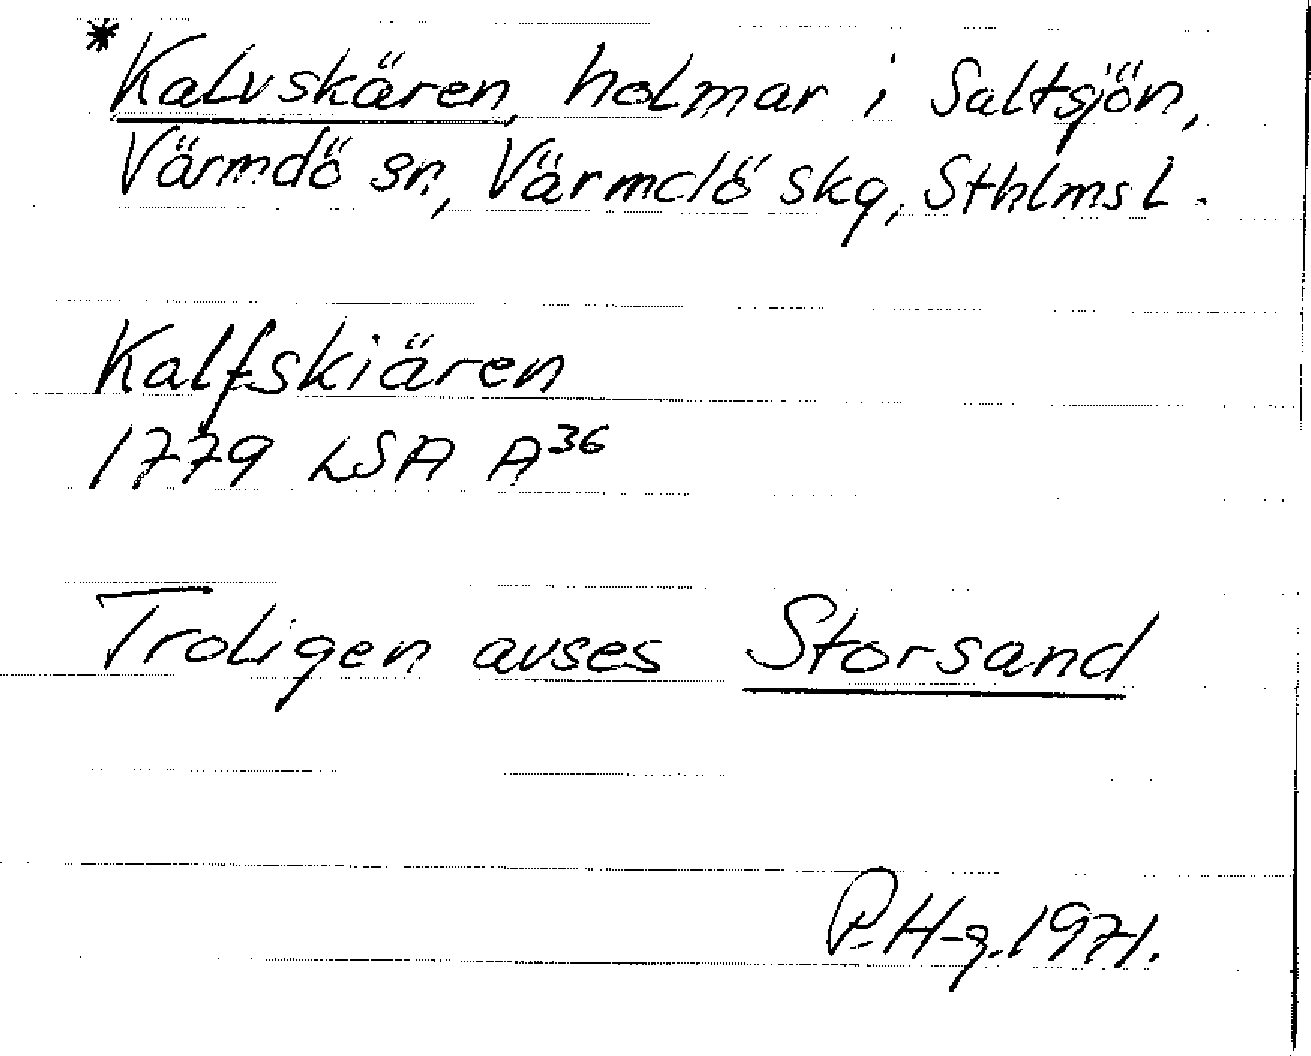 *Kalvskären, holmar i Saltsjön,
Värmdö sn, Värmdö skg, Sthlms l.
Kalfskiären
1779 LSA A36
Troligen avses Storsand
P. H-g. 1971.